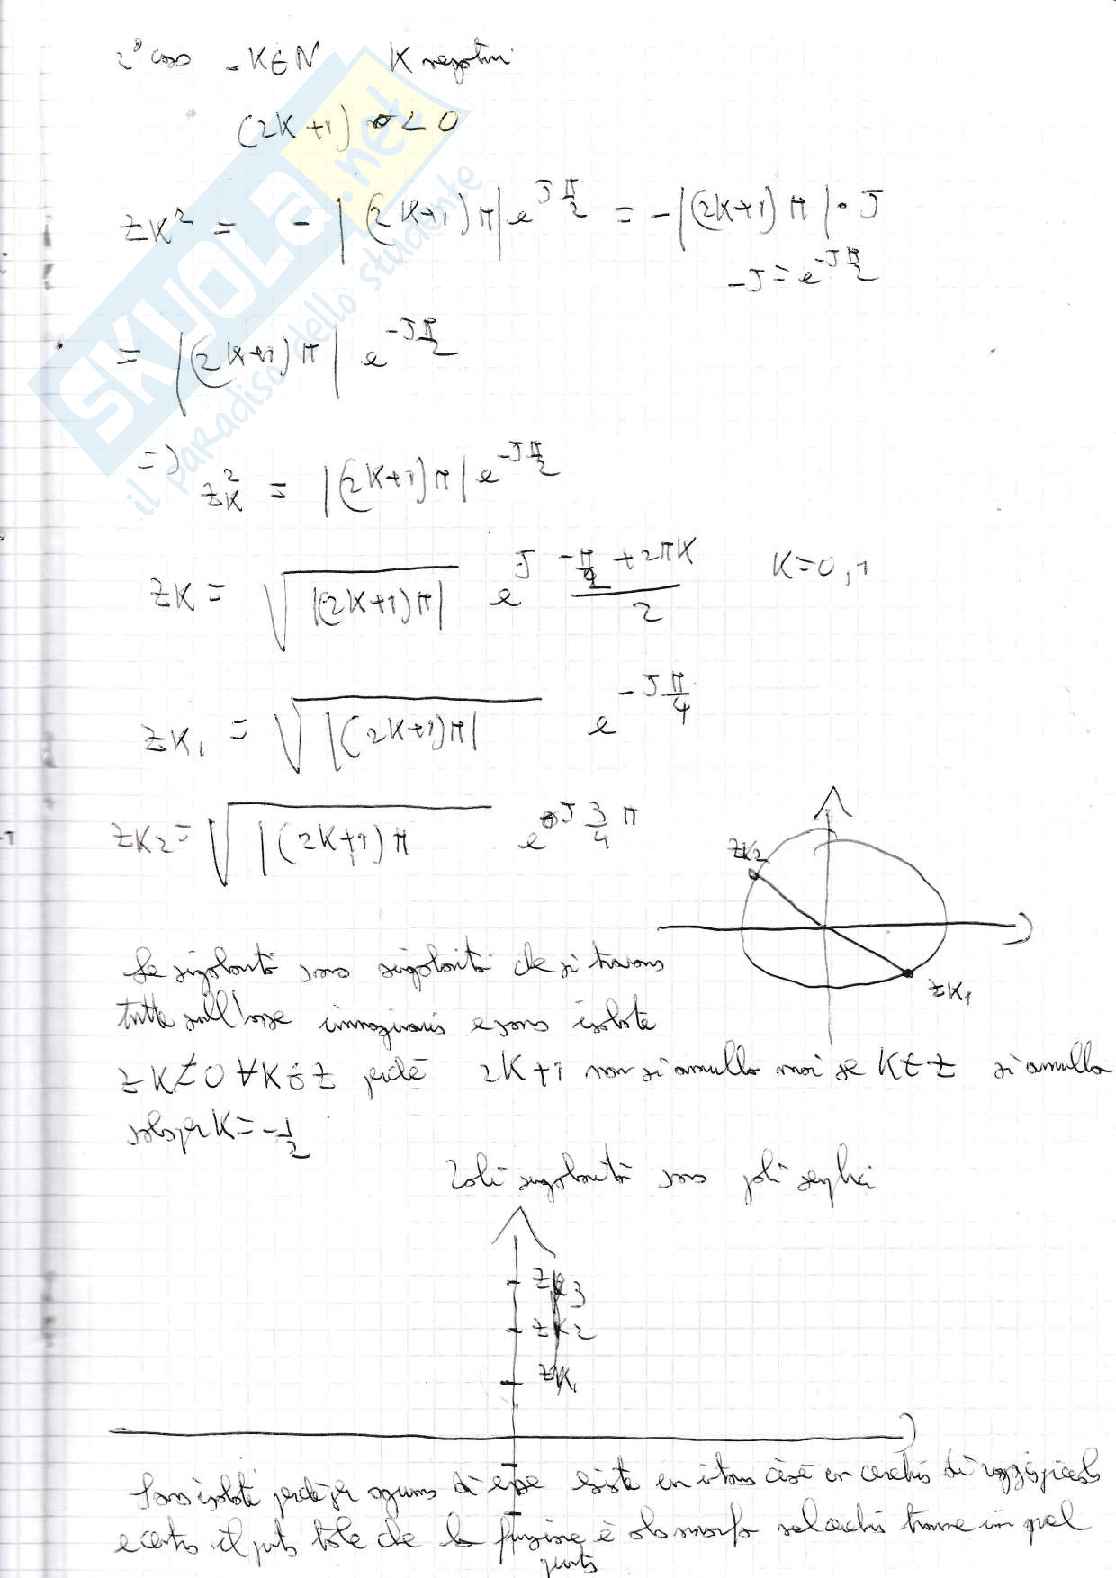 2° caso - K ∈ N K negativi
(2K+1) < 0
zK² = - |(2K+1)π| e^{Jπ/2} = -|(2K+1)π| · J
-J = e^{-Jπ/2}
= |(2K+1)π| e^{-Jπ/2}
=> zK² = |(2K+1)π| e^{-Jπ/2}
zK = √|(2K+1)π| e^{J (-π/2 + 2πK)/2} K=0,1
zK₁ = √|(2K+1)π| e^{-Jπ/4}
zK2 = √|(2K+1)π e^{J 3/4 π}
zK2
zK1
Le singolarità sono singolarità che si trovano
tutte sull'asse immaginario e sono isolate
zK ≠ 0 ∀K ∈ Z perché 2K+1 non si annulla mai se K ∈ Z si annulla
solo per K = -1/2
Tali singolarità sono poli semplici
zK3
zK2
zK1
Sono isolate perché per ognuno di esse esiste un intorno cioè un cerchio di raggio piccolo
e centro il punto tale che la funzione è olomorfa nel cerchio tranne in quel
punto
SKUOLA.net
il paradiso dello studente